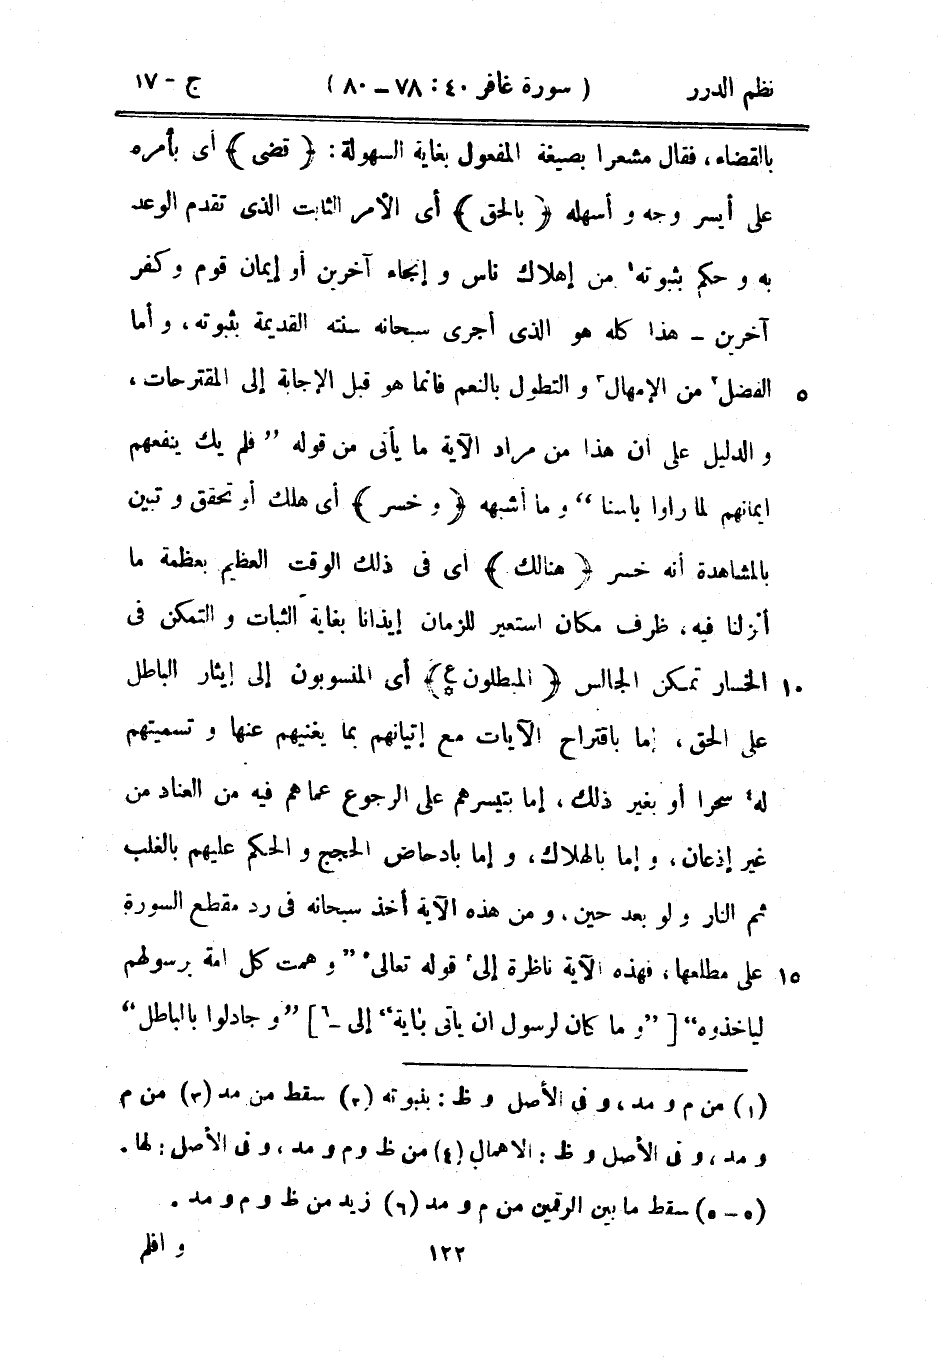 نظم الدرر ( سورة غافر ٤٠ : ٧٨ – ٨٠ ) ج – ١٧
بالقضاء ، فقال مشعرا بصيغة المفعول بغاية السهولة : ﴿ قضى ﴾ أى بأمره
على أيسر وجه و أسهله ﴿ بالحق ﴾ أى الأمر الثابت الذى تقدم الوعد
به و حكم بثبوته١ من إهلاك ناس و إنجاء آخرين أو إيمان قوم و كفر
آخرين – هذا كله هو الذى أجرى سبحانه سنته القديمة بثبوته ، و أما
٥ الفضل٢ من الإمهال٣ و التطول بالنعم فانما هو قبل الإجابة إلى المقترحات ،
و الدليل على أن هذا من مراد الآية ما يأتى من قوله ” فلم يك ينفعهم
ايمانهم لما راوا باسنا “ و ما أشبهه ﴿ و خسر ﴾ أى هلك أو تحقق و تبين
بالمشاهدة أنه خسر ﴿ هنالك ﴾ أى فى ذلك الوقت العظيم بعظمة ما
أنزلنا فيه ، ظرف مكان استعير للزمان إيذانا بغاية الثبات و التمكن فى
١٠ الخسار تمكن الجالس ﴿ المبطلون ع ﴾ أى المنسوبون إلى إيثار الباطل
على الحق ، إما باقتراح الآيات مع إتيانهم بما يغنيهم عنها و تسميتهم
له٤ سحرا أو بغير ذلك ، إما بتيسرهم على الرجوع عما هم فيه من العناد من
غير إذعان ، و إما بالهلاك ، و إما بادحاض الحجج و الحكم عليهم بالغلب
ثم النار و لو بعد حين ، و من هذه الآية أخذ سبحانه فى رد مقطع السورة
١٥ على مطلعها ، فهذه الآية ناظرة إلى٥ قوله تعالى٥ ” و همت كل امة برسولهم
لياخذوه “ [ ” و ما كان لرسول ان ياتى باية “ إلى –٦ ] ” و جادلوا بالباطل “
(١) من م و مد ، و فى الأصل و ظ : بثبوته (٢) سقط من مد (٣) من م
و مد ، و فى الأصل و ظ : الاهمال (٤) من ظ و م و مد ، و فى الأصل : لها .
(٥ – ٥) سقط ما بين الرقمين من م و مد (٦) زيد من ظ و م و مد .
١٢٢ و افلم